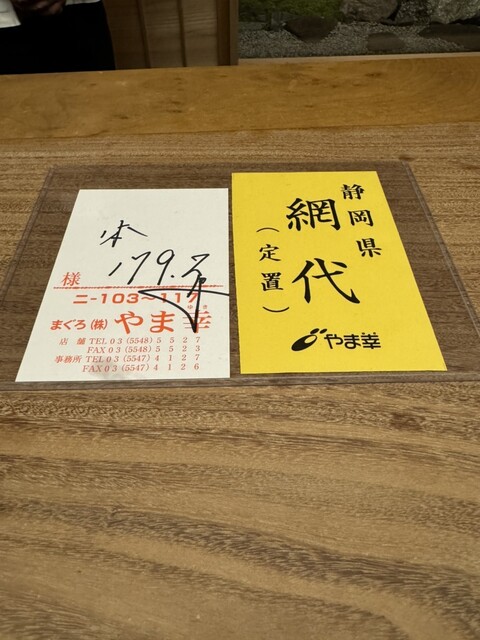 本
様
ニ-103〜117
まぐろ(株)やま幸
ゆき
店舗 TEL 03 (5548) 5527
FAX 03 (5548) 5523
事務所 TEL 03 (5547) 4127
FAX 03 (5547) 4126
静岡県
網代
(定置)
やま幸